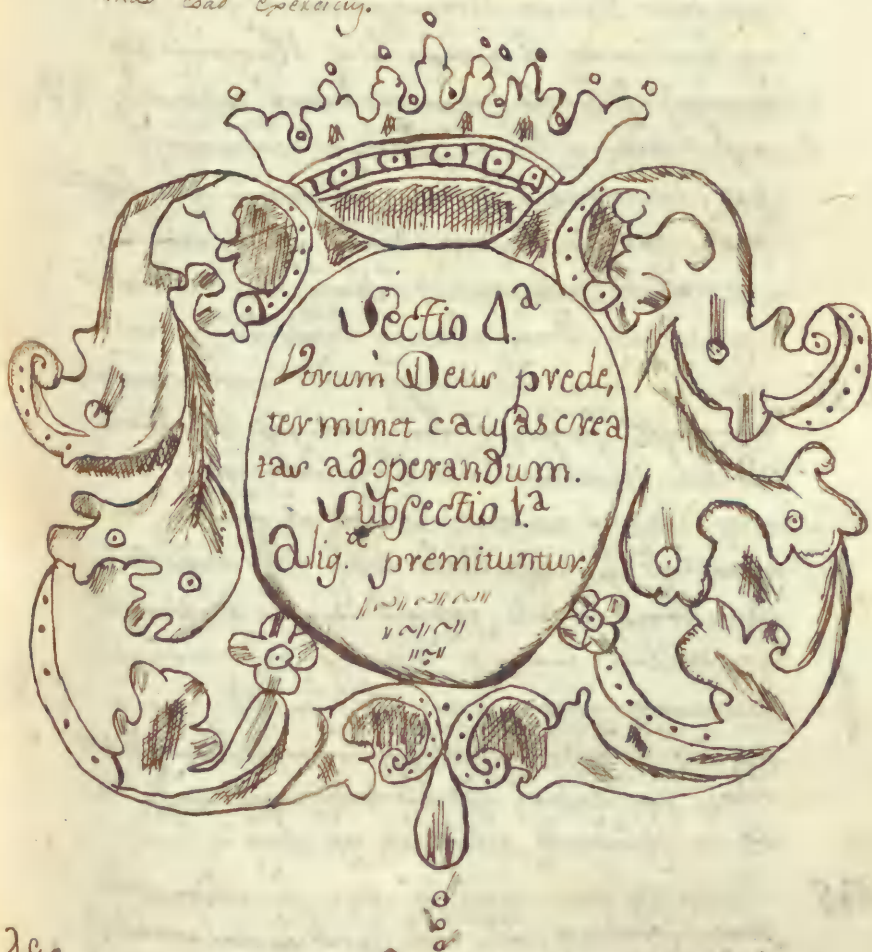 Sectio 4.ª
Vtrum Deus prede,
terminet causas crea
tas ad operandum.
Subsectio 1.ª
Aliq.ᵃ premituntur